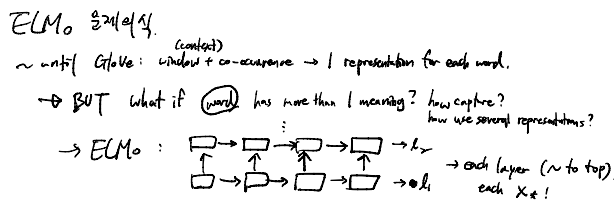 ELMo 문제의식.
~ until GloVe: window (context) + co-occurrence → 1 representation for each word.
→ BUT what if word has more than 1 meaning? how capture?
how use several representations?
→ ELMo :
→ each layer (~ to top)
each